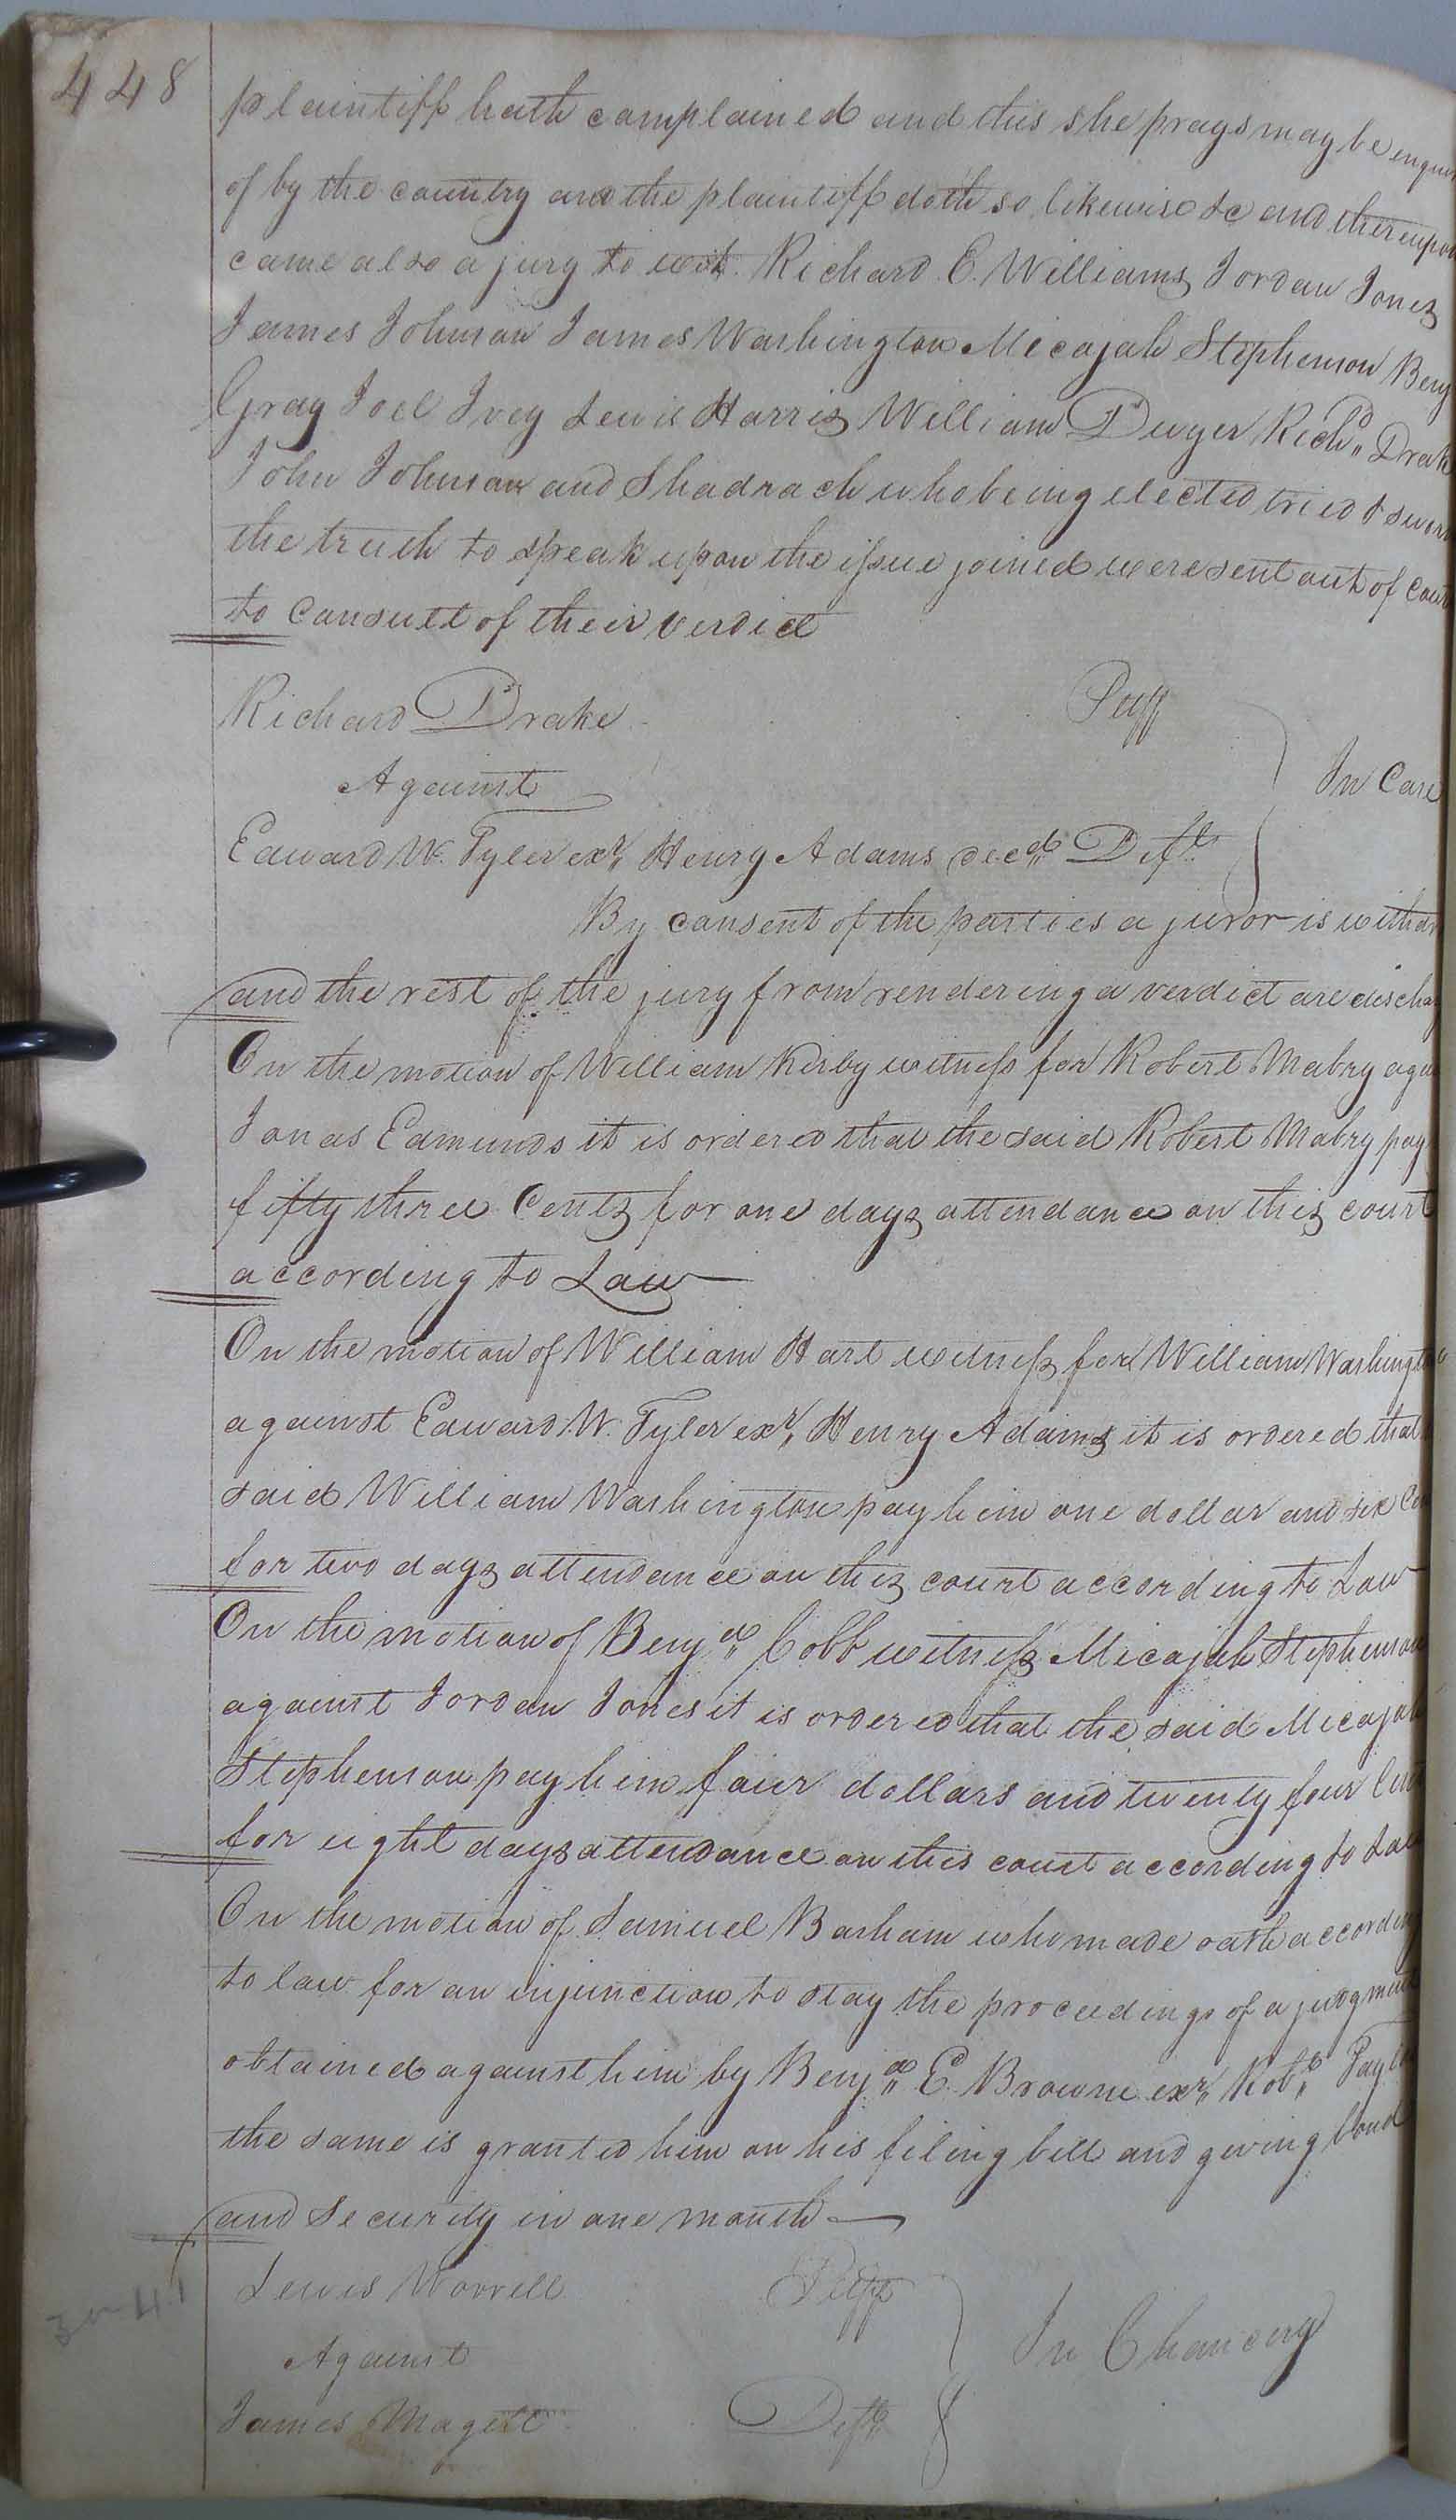 448
plaintiff hath complained and this she prays may be enqui
of by the country and the plaintiff doth so likewise &c and thereupon
came also a jury to wit. Richard E. Williams Jordan Jones
James Johnson James Washington Micajah Stephenson Benj
Gray Joel Ivey Lewis Harris William Dwyer Richd Drake
John Johnson and Shadrach who being elected tried & sworn
the truth to speak upon the issue joined were sent out of cour
to consult of their verdict
Richard Drake Plff
Against
In Case
Edward W. Tyler exr Henry Adams decd Deft
By consent of the parties a juror is withdr
and the rest of the jury from rendering a verdict are discha
On the motion of William Kirby witness for Robert Mabry aga
Jonas Edmunds it is ordered that the said Robert Mabry pay
fifty three Cents for one days attendance on this court
according to Law
On the motion of William Hart witness for William Washington
against Edward W. Tyler exr Henry Adams it is ordered that
said William Washington pay him one dollar and six Ce
for two days attendance on this court according to Law
On the motion of Benja Cobb witness Micajah Stephenson
against Jordan Jones it is ordered that the said Micajah
Stephenson pay him four dollars and twenty four Cents
for eight days attendance on this court according to Law
On the motion of Samuel Barham who made oath according
to law for an injunction to stay the proceedings of a judgment
obtained against him by Benja E. Browne exr Robt Taylo
the same is granted him on his filing bill and giving bond
and security in one month
Lewis Worrell Plff
Against
In Chancery
James Magett Deft